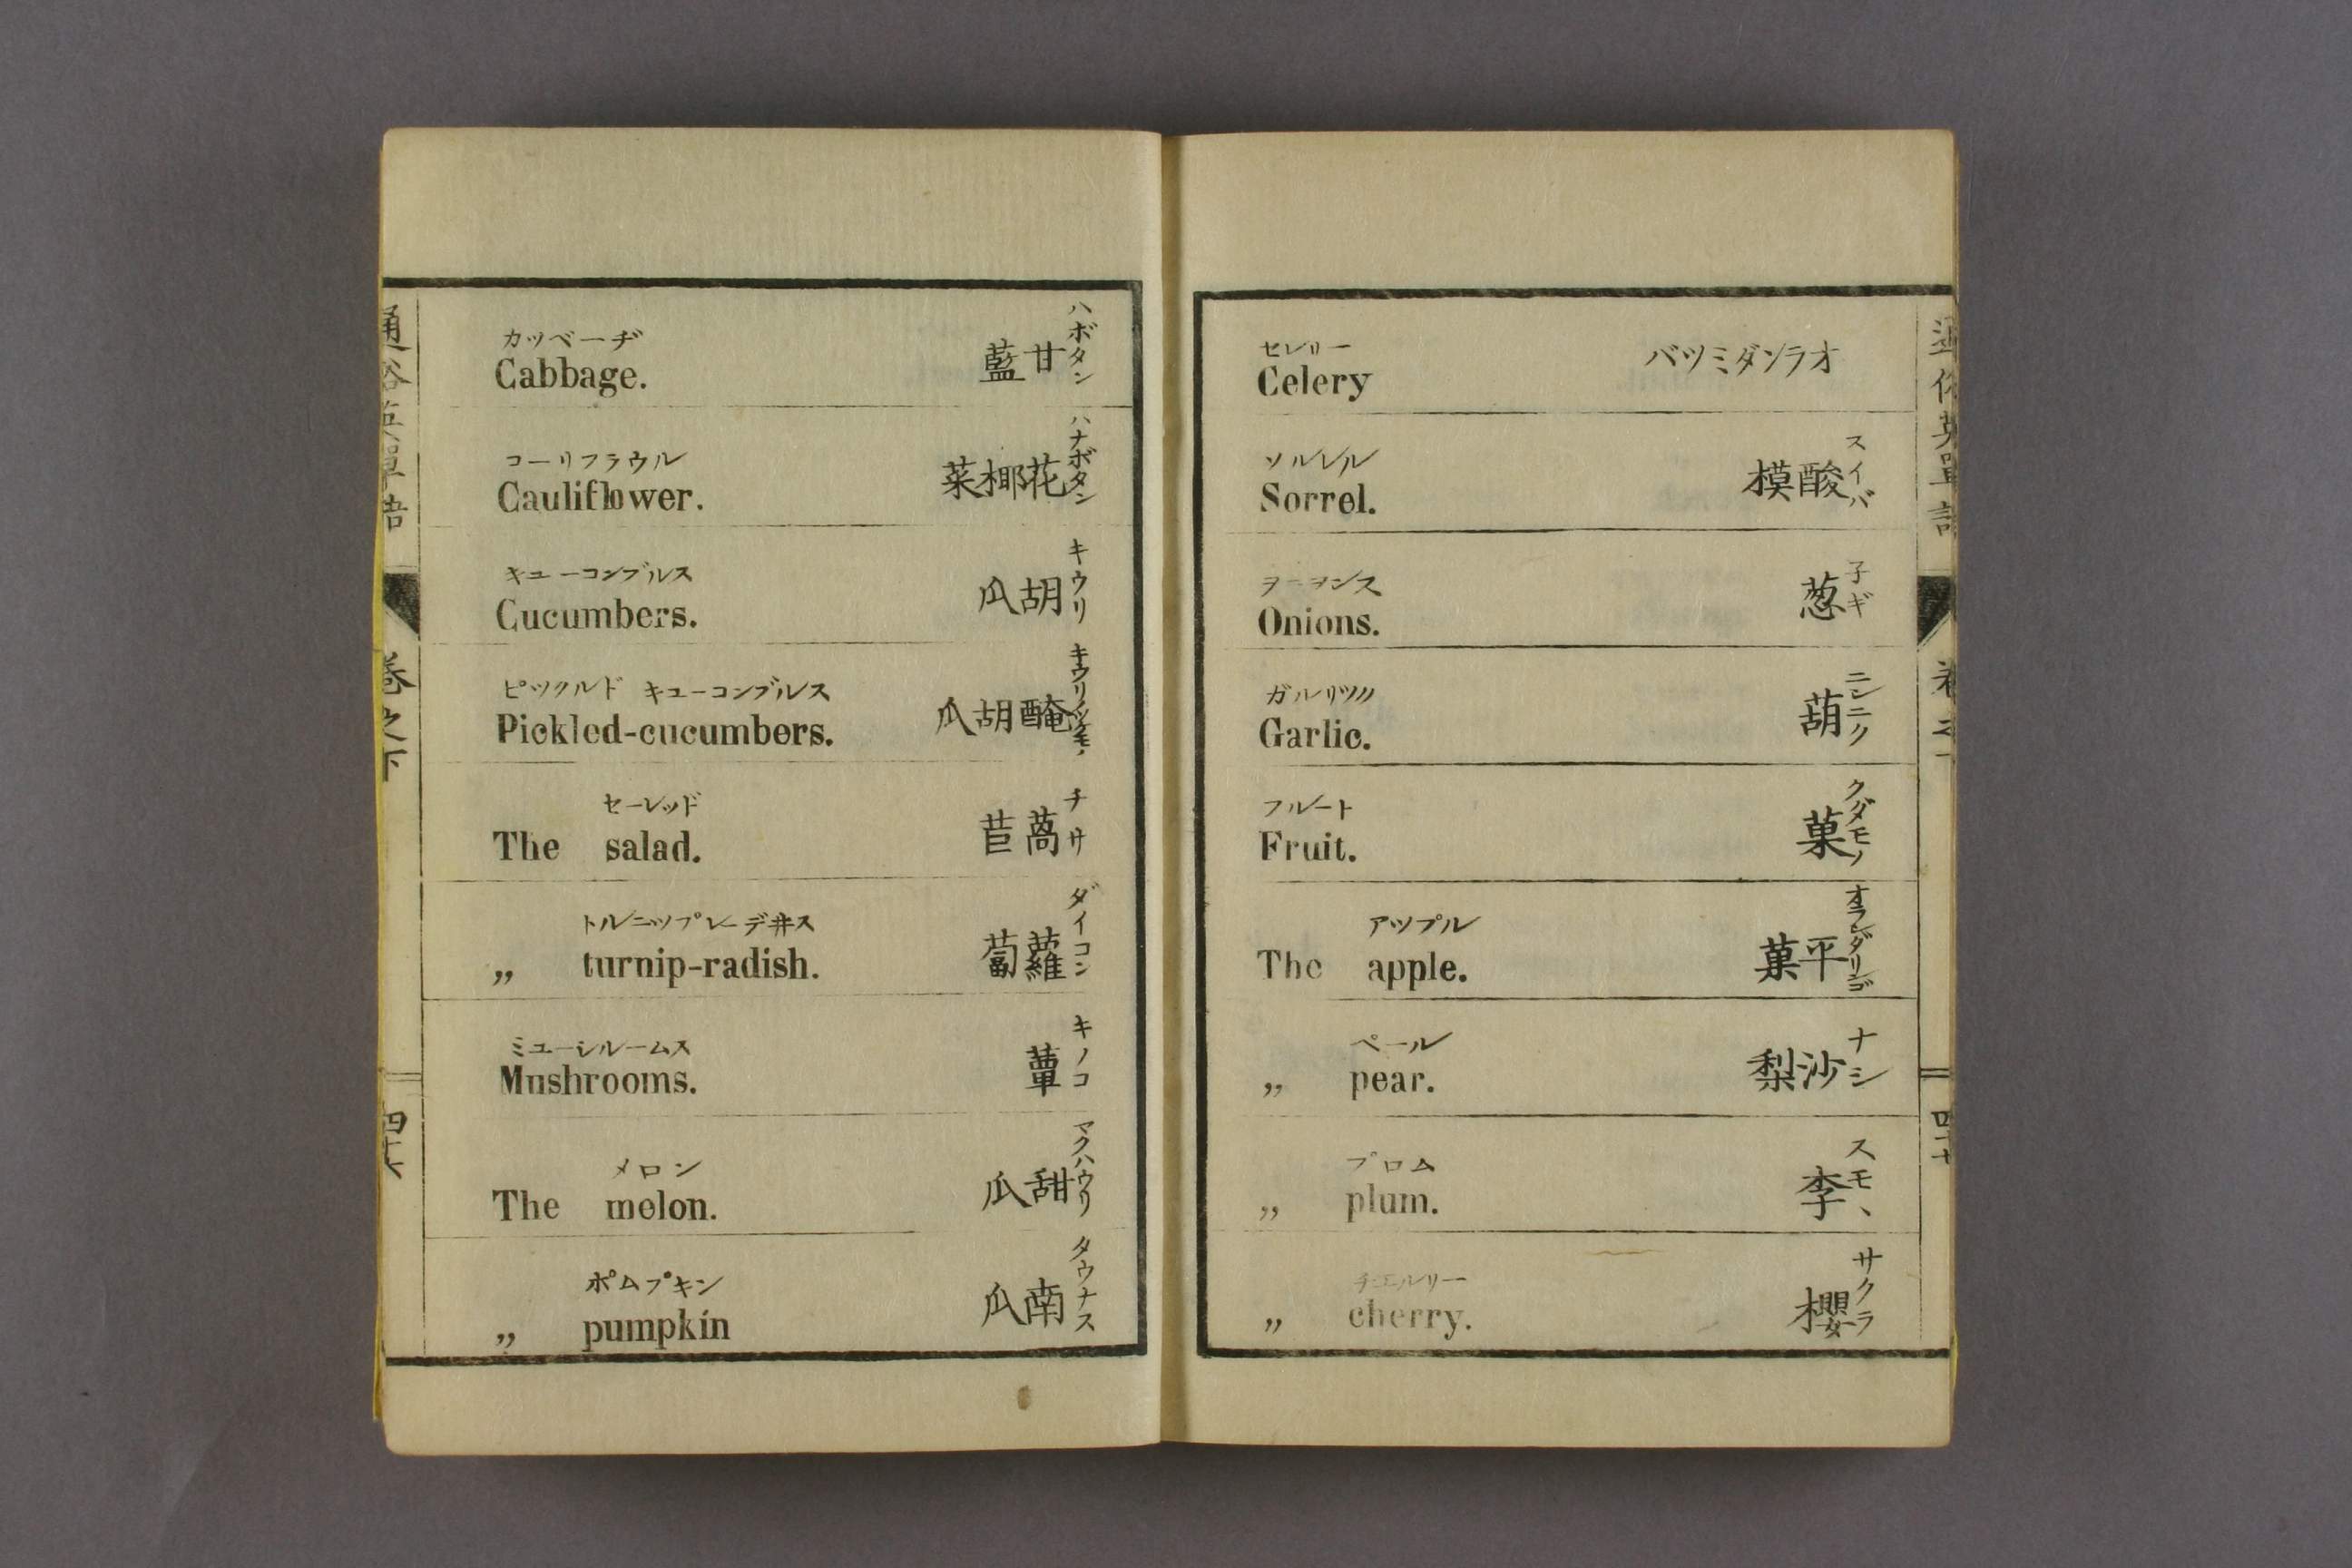 通俗英單語
卷之下
四十六
カツベーヂ
Cabbage.
甘藍
ハボタン
コーリフラウル
Cauliflower.
花椰菜
ハナボタン
キユーコンブルス
Cucumbers.
胡瓜
キウリ
ピツクルド キユーコンブルス
Pickled-cucumbers.
醃胡瓜
キウリノツケモノ
セーレッド
The salad.
萵苣
チサ
トルニツプレーデ井ス
„ turnip-radish.
蘿蔔
ダイコン
ミユーシルームス
Mushrooms.
蕈
キノコ
メロン
The melon.
甜瓜
マクハウリ
ポムプキン
„ pumpkin
南瓜
タウナス
セレリー
Celery
オランダミツバ
ソルレル
Sorrel.
酸模
スイバ
ヲーヨンス
Onions.
葱
子ギ
ガルリツク
Garlic.
葫
ニンニク
フルート
Fruit.
菓
クダモノ
アツプル
The apple.
平菓
オランダリンゴ
ペール
„ pear.
沙梨
ナシ
プロム
„ plum.
李
スモヽ
チエルリー
„ cherry.
櫻
サクラ